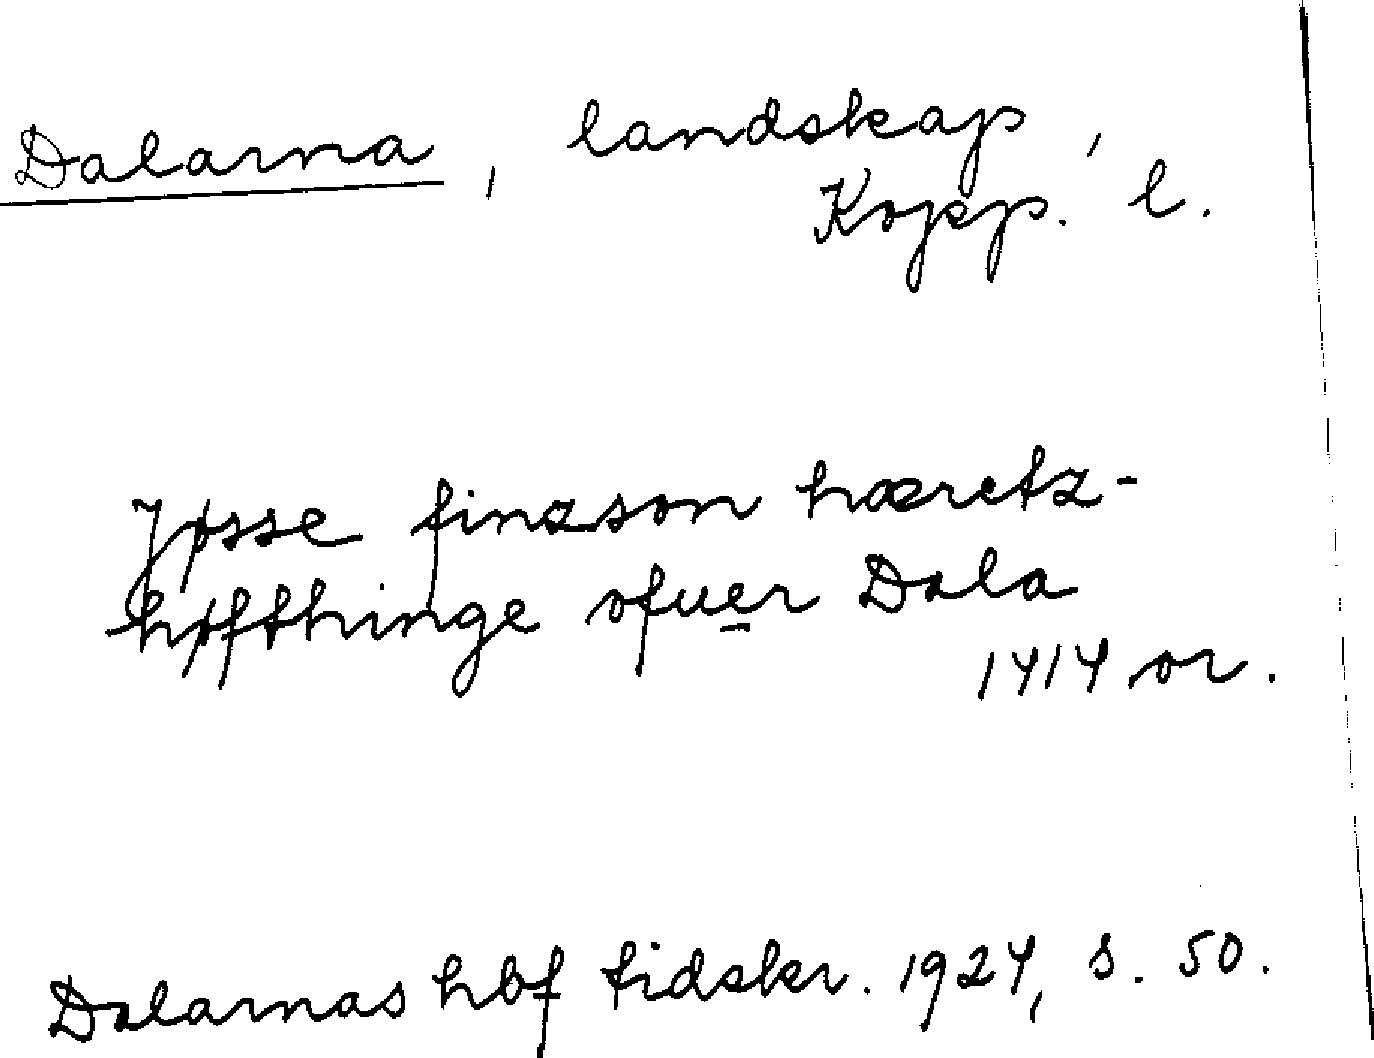 Dalarna, landskap,
Kopp. l.
Jøsse finzson hæretz-
høffthinge ofuer Dala
1414 or.
Dalarnas hbf tidskr. 1924, s. 50.